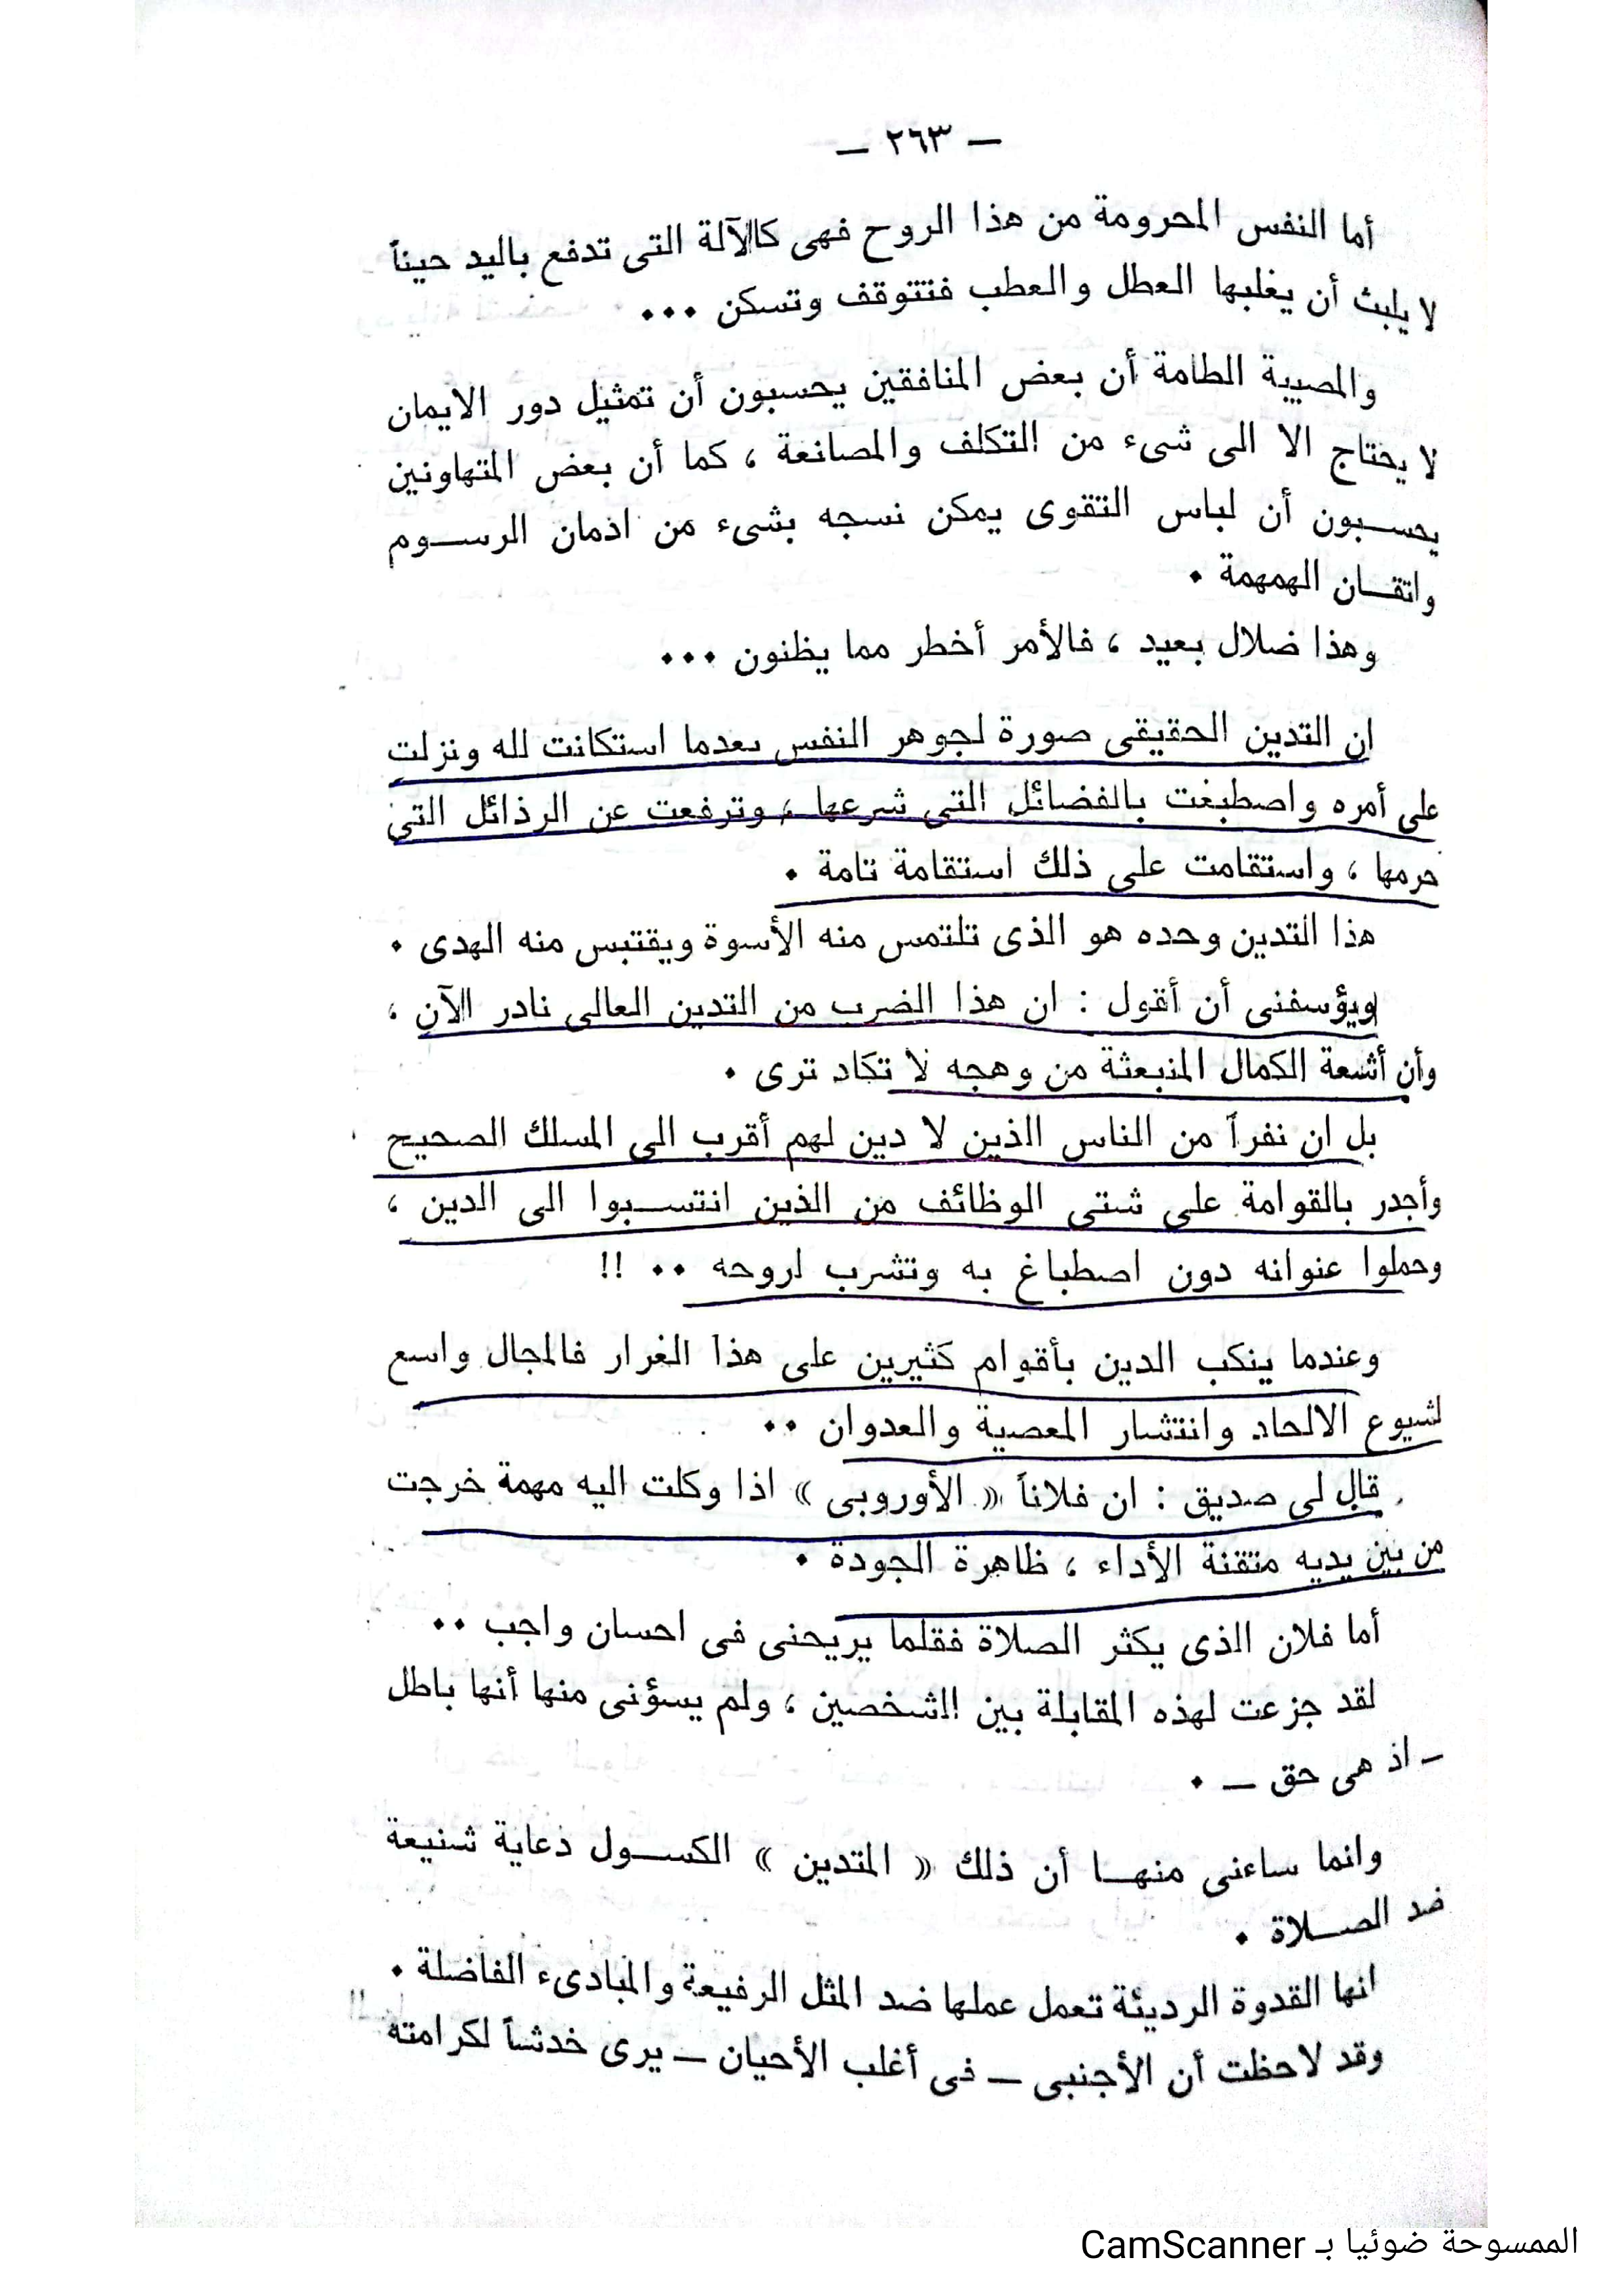 — ٢٦٣ —
أما النفس المحرومة من هذا الروح فهى كالآلة التى تدفع باليد حيناً
لا يلبث أن يغلبها العطل والعطب فتتوقف وتسكن ٠٠٠
والمصيبة الطامة أن بعض المنافقين يحسبون أن تمثيل دور الايمان
لا يحتاج الا الى شىء من التكلف والمصانعة ، كما أن بعض المتهاونين
يحسبون أن لباس التقوى يمكن نسجه بشىء من ادمان الرسوم
واتقان الهمهمة ٠
وهذا ضلال بعيد ، فالأمر أخطر مما يظنون ٠٠٠
ان التدين الحقيقى صورة لجوهر النفس بعدما استكانت لله ونزلت
على أمره واصطبغت بالفضائل التى شرعها ، وترفعت عن الرذائل التى
حرمها ، واستقامت على ذلك استقامة تامة ٠
هذا التدين وحده هو الذى تلتمس منه الأسوة ويقتبس منه الهدى ٠
ويؤسفنى أن أقول : ان هذا الضرب من التدين العالى نادر الآن ،
وأن أشعة الكمال المنبعثة من وهجه لا تكاد ترى ٠
بل ان نفراً من الناس الذين لا دين لهم أقرب الى المسلك الصحيح
وأجدر بالقوامة على شتى الوظائف من الذين انتسبوا الى الدين ،
وحملوا عنوانه دون اصطباغ به وتشرب لروحه ٠٠ !!
وعندما ينكب الدين بأقوام كثيرين على هذا الغرار فالمجال واسع
لشيوع الالحاد وانتشار المعصية والعدوان ٠٠
قال لى صديق : ان فلاناً « الأوروبى » اذا وكلت اليه مهمة خرجت
من بين يديه متقنة الأداء ، ظاهرة الجودة ٠
أما فلان الذى يكثر الصلاة فقلما يريحنى فى احسان واجب ٠٠
لقد جزعت لهذه المقابلة بين الشخصين ، ولم يسؤنى منها أنها باطل
— اذ هى حق — ٠
وانما ساءنى منها أن ذلك « المتدين » الكسول دعاية شنيعة
ضد الصلاة ٠
انها القدوة الرديئة تعمل عملها ضد المثل الرفيعة والمبادىء الفاضلة ٠
وقد لاحظت أن الأجنبى — فى أغلب الأحيان — يرى خدشاً لكرامته
الممسوحة ضوئيا بـ CamScanner